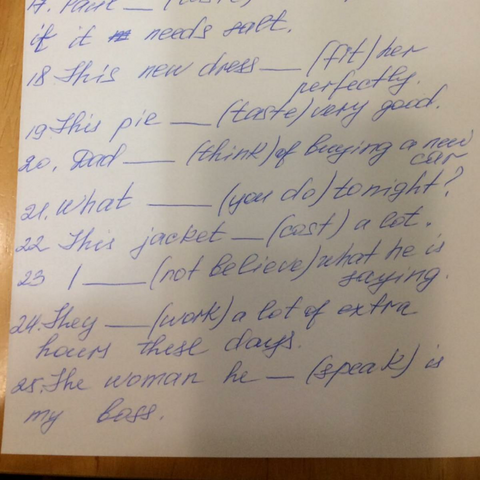 if it needs salt.
18 This new dress __ (fit) her
perfectly.
19. This pie __ (taste) very good.
20. Dad __ (think) of buying a new
car
21. What __ (you do) tonight?
22 This jacket __ (cost) a lot.
23 I __ (not believe) what he is
saying.
24. They __ (work) a lot of extra
hours these days.
25. The woman he __ (speak) is
my boss.